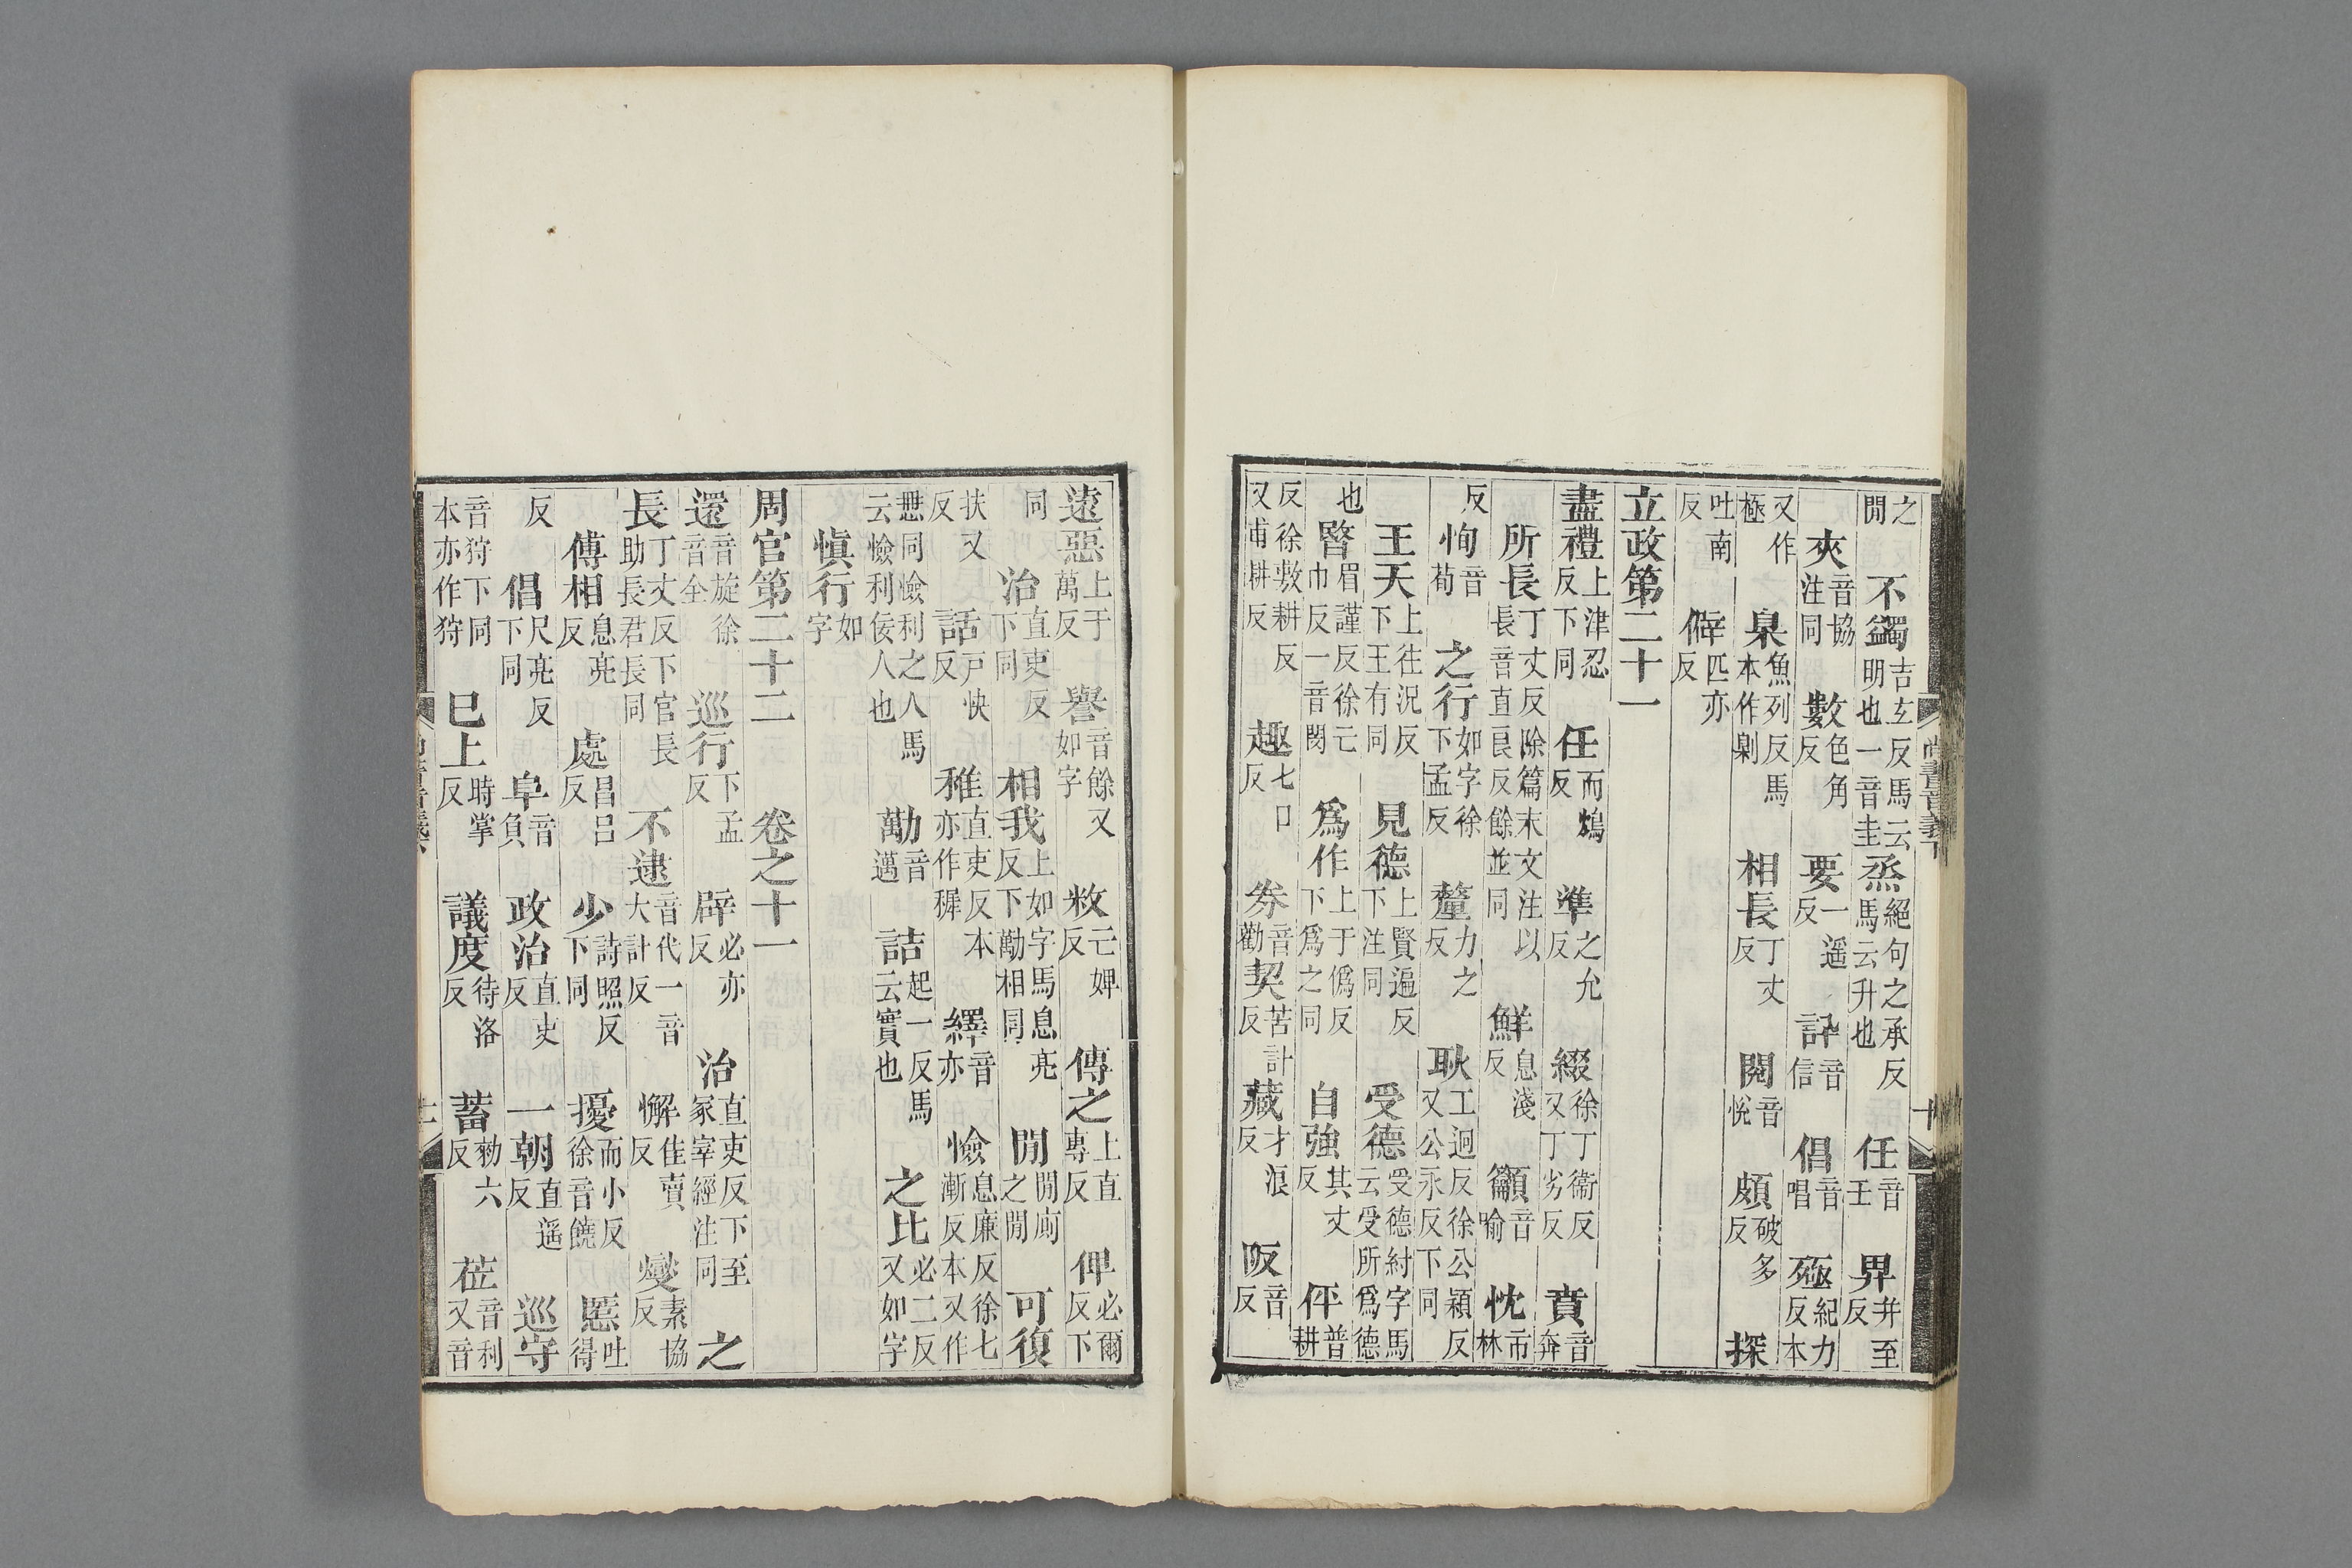 之閒 不蠲吉玄反馬云明也一音圭 烝絕句之承反馬云升也 任音壬 畀并至反
夾音協注同 數色角反 要一遥反 訊音信 倡音唱 殛紀力反本
又作極 臬魚列反馬本作剿 相長丁丈反 閱音悅 頗破多反 探
吐南反 僻匹亦反
立政第二十一
盡禮上津忍反下同 任而鴆反 準之允反 綴徐丁衞反又丁劣反 賁音奔
所長丁丈反除篇末文注以長音直良反餘並同 鮮息淺反 籲音喻 忱市林
反 恂音荀 之行如字徐下孟反 釐力之反 耿工迥反徐公穎反又公永反下同
王天上往況反下王有同 見德上賢遍反下注同 受德受德紂字馬云受所爲德
也 暋眉謹反徐亡巾反一音閔 爲作上于僞反下爲之同 自強其丈反 伻普耕
反徐敷耕反又甫耕反 趣七口反 券音勸 契苦計反 藏才浪反 阪音反
遠惡上于萬反 譽音餘又如字 敉亡婢反 傳之上直專反 俾必爾反下
同 治直吏反下同 相我上如字馬息亮反下勱相同 閒閒廁之閒 可復
扶又反 話戸快反 稚直吏反本亦作穉 繹音亦 憸息廉反徐七漸反本又作
㦰同憸利之人馬云憸利佞人也 勱音邁 詰起一反馬云實也 之比必二反又如字
愼行如字
周官第二十二 卷之十一
還音旋徐音全 巡行下孟反 辟必亦反 治直吏反下至冢宰經注同 之
長丁丈反下官長助長君長長同 不逮音代一音大計反 懈佳賣反 燮素協反
傅相息亮反 處昌呂反 少詩照反下同 擾而小反徐音饒 慝吐得
反 倡尺亮反下同 阜音負 政治直吏反 一朝直遥反 巡守
音狩下同本亦作狩 巳上時掌反 議度待洛反 蓄勑六反 莅音利又音
尚書音義下 十